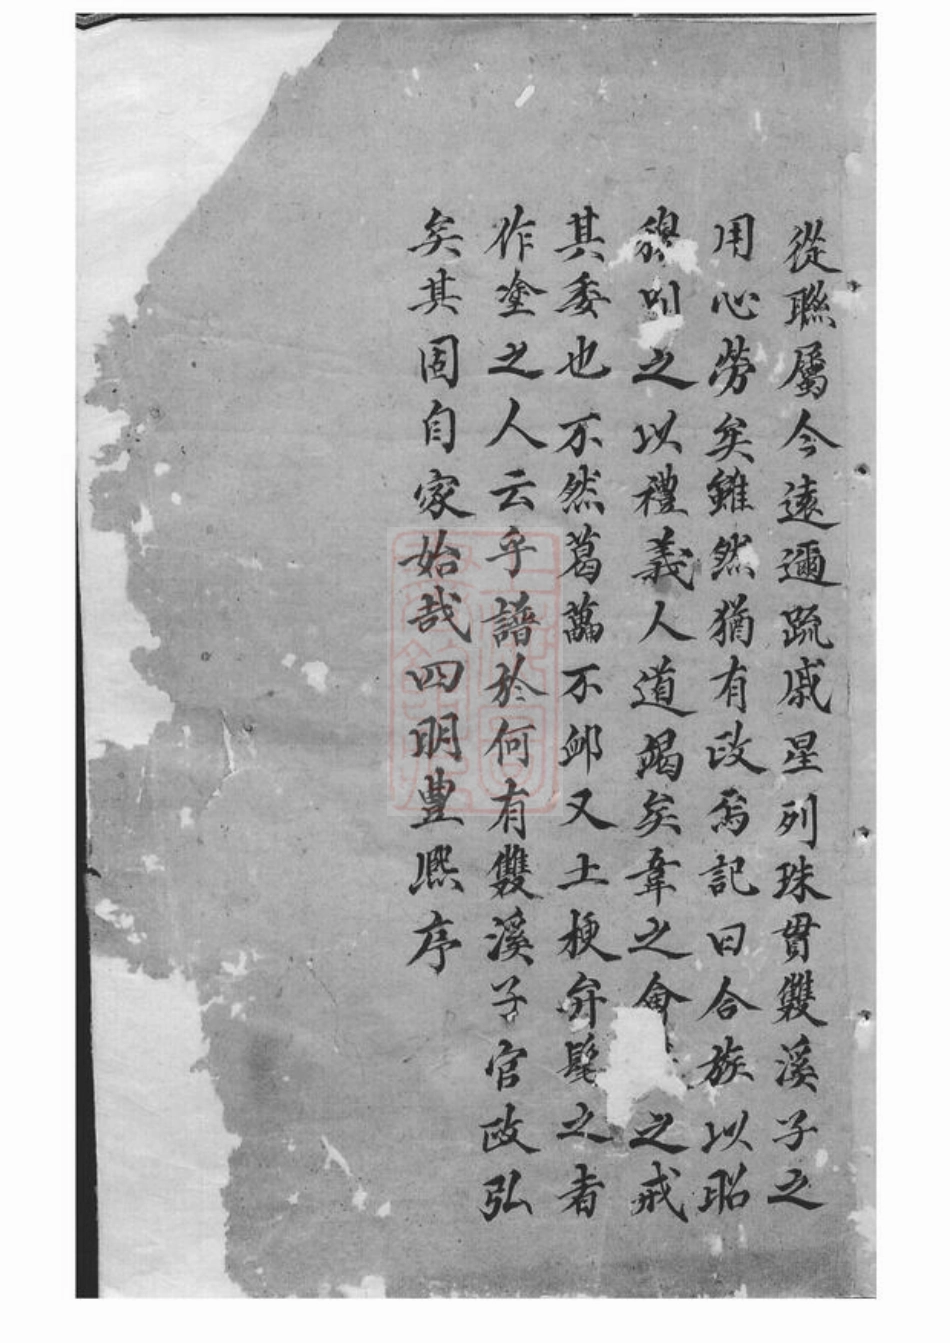 從聯屬今遠邇疏戚星列珠貫雙溪子之
用心勞矣雖然猶有政焉記曰合族以昭
穆別之以禮義人道竭矣葦之會之戒
其委也不然葛藟不卹又土梗弁髦之者
作塗之人云乎譜於何有雙溪子官政弘
矣其固自家始哉四明豊熈序